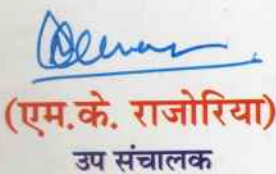 (एम.के. राजोरिया)
उप संचालक